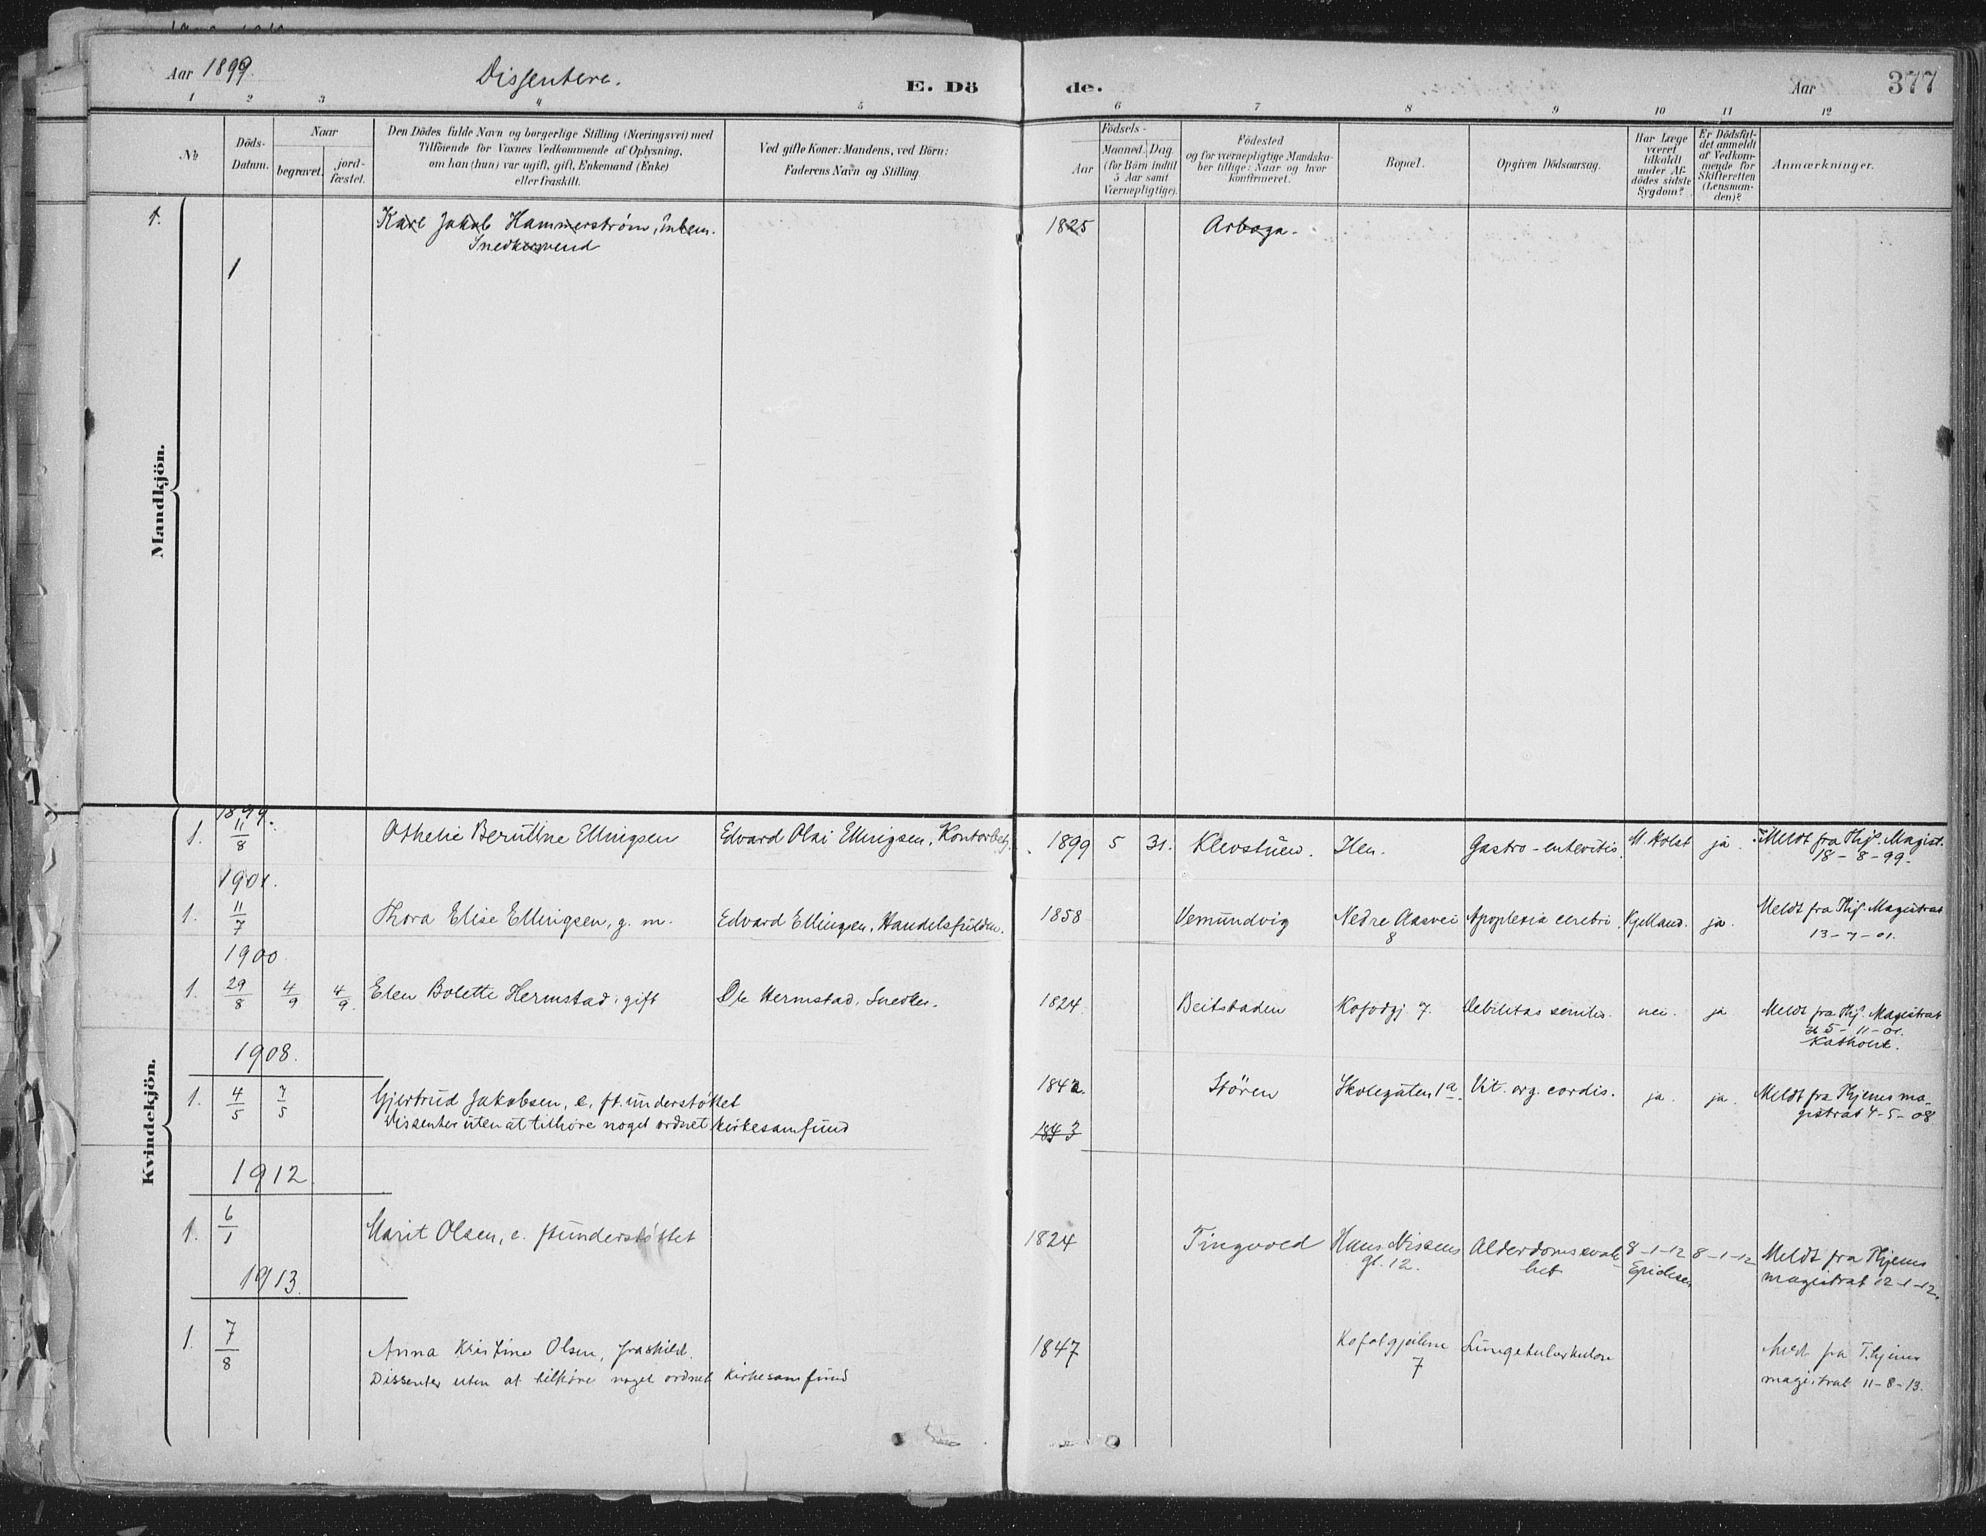 Aar 1899.
Dissentere.
E. Dö
de.
Aar
377
1 2 3 4 5 6 7 8 9 10 11 12
№
Döds-Datum.
Naar
begravet.
jord-fæstet.
Den Dödes fulde Navn og borgerlige Stilling (Næringsvei) med
Tilföiende for Voxnes Vedkommende af Oplysning,
om han (hun) var ugift, gift, Enkemand (Enke)
eller fraskilt.
Ved gifte Koner: Mandens, ved Börn:
Faderens Navn og Stilling.
Födsels-
Aar
Maaned. Dag.
(for Börn indtil
5 Aar samt
Værnepligtige).
Födested
og for værnepligtige Mandska-
ber tillige: Naar og hvor
konfirmeret.
Bopæl.
Opgiven Dödsaarsag.
Har Læge
været
tilkaldt
under Af-
dödes sidste
Sygdom?
Er Dödsfal-
det anmeldt
af Vedkom-
mende for
Skifteretten
(Lensman-
den)?
Anmærkninger.
Mandkjön.
1. Karl Jakob Hammerstrøm, 1825 Arboga.
Snedkersvend
1
Kvindekjön.
1899.
1. 11/8 Othelie Ellingsen Edvard Olai Ellingsen, 1899 5 31. Klevstuen. Ilen. Gastro-enteritis. M. Holst ja. Meldt fra Thj. Magist.
18-8-99.
1901.
1. 11/7 Thora Elise Ellingsen, g. m. Edvard Ellingsen, 1858 Vemundvig Nedre Aasvei Apoplexia cerebri. Kjelland. ja. Meldt fra Thj. Magistrat
8 13-7-01.
1900.
1. 29/8 4/9 4/9 Elen Bolette Hermstad, gift Ole Hermstad, Snedker. 1824. Beitstaden Kofodgj. 7. Debilitas senilis. nei. ja Meldt fra Thj. Magistrat
5-11-01.
Katholik.
1908.
1. 4/5 7/5 Gjertrud Jakobsen, e. ft. understøttet 1842. Støren Skolegaten 1a. Vit. org. cordis. ja. ja. Meldt fra Thjems ma-
Dissenter uten at tilhøre noget ordnet kirkesamfund gistrat 4-5-08.
1843
1912
1. 6/1 Marit Olsen, e. ftunderstøttet 1824 Tingvold Hans Nissens Alderdomssvak- 8-1-12 8-1-12 Meldt fra Thjems
gt. 12. het magistrat 12-1-12.
1913.
1. 7/8 Anna Kristine Olsen, fraskild. 1847 Lungetuberkulose Meldt fra Thjems
7
Dissenter uten at tilhøre noget ordnet kirkesamfund magistrat 11-8-13.